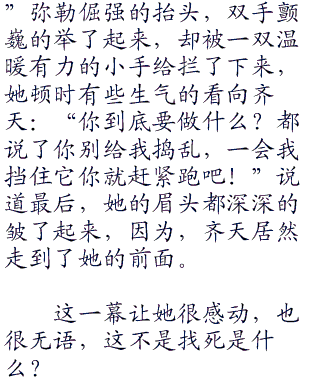 ”弥勒倔强的抬头，双手颤
巍的举了起来，却被一双温
暖有力的小手给拦了下来，
她顿时有些生气的看向齐
天：“你到底要做什么？都
说了你别给我捣乱，一会我
挡住它你就赶紧跑吧！”说
道最后，她的眉头都深深的
皱了起来，因为，齐天居然
走到了她的前面。
这一幕让她很感动，也
很无语，这不是找死是什
么？